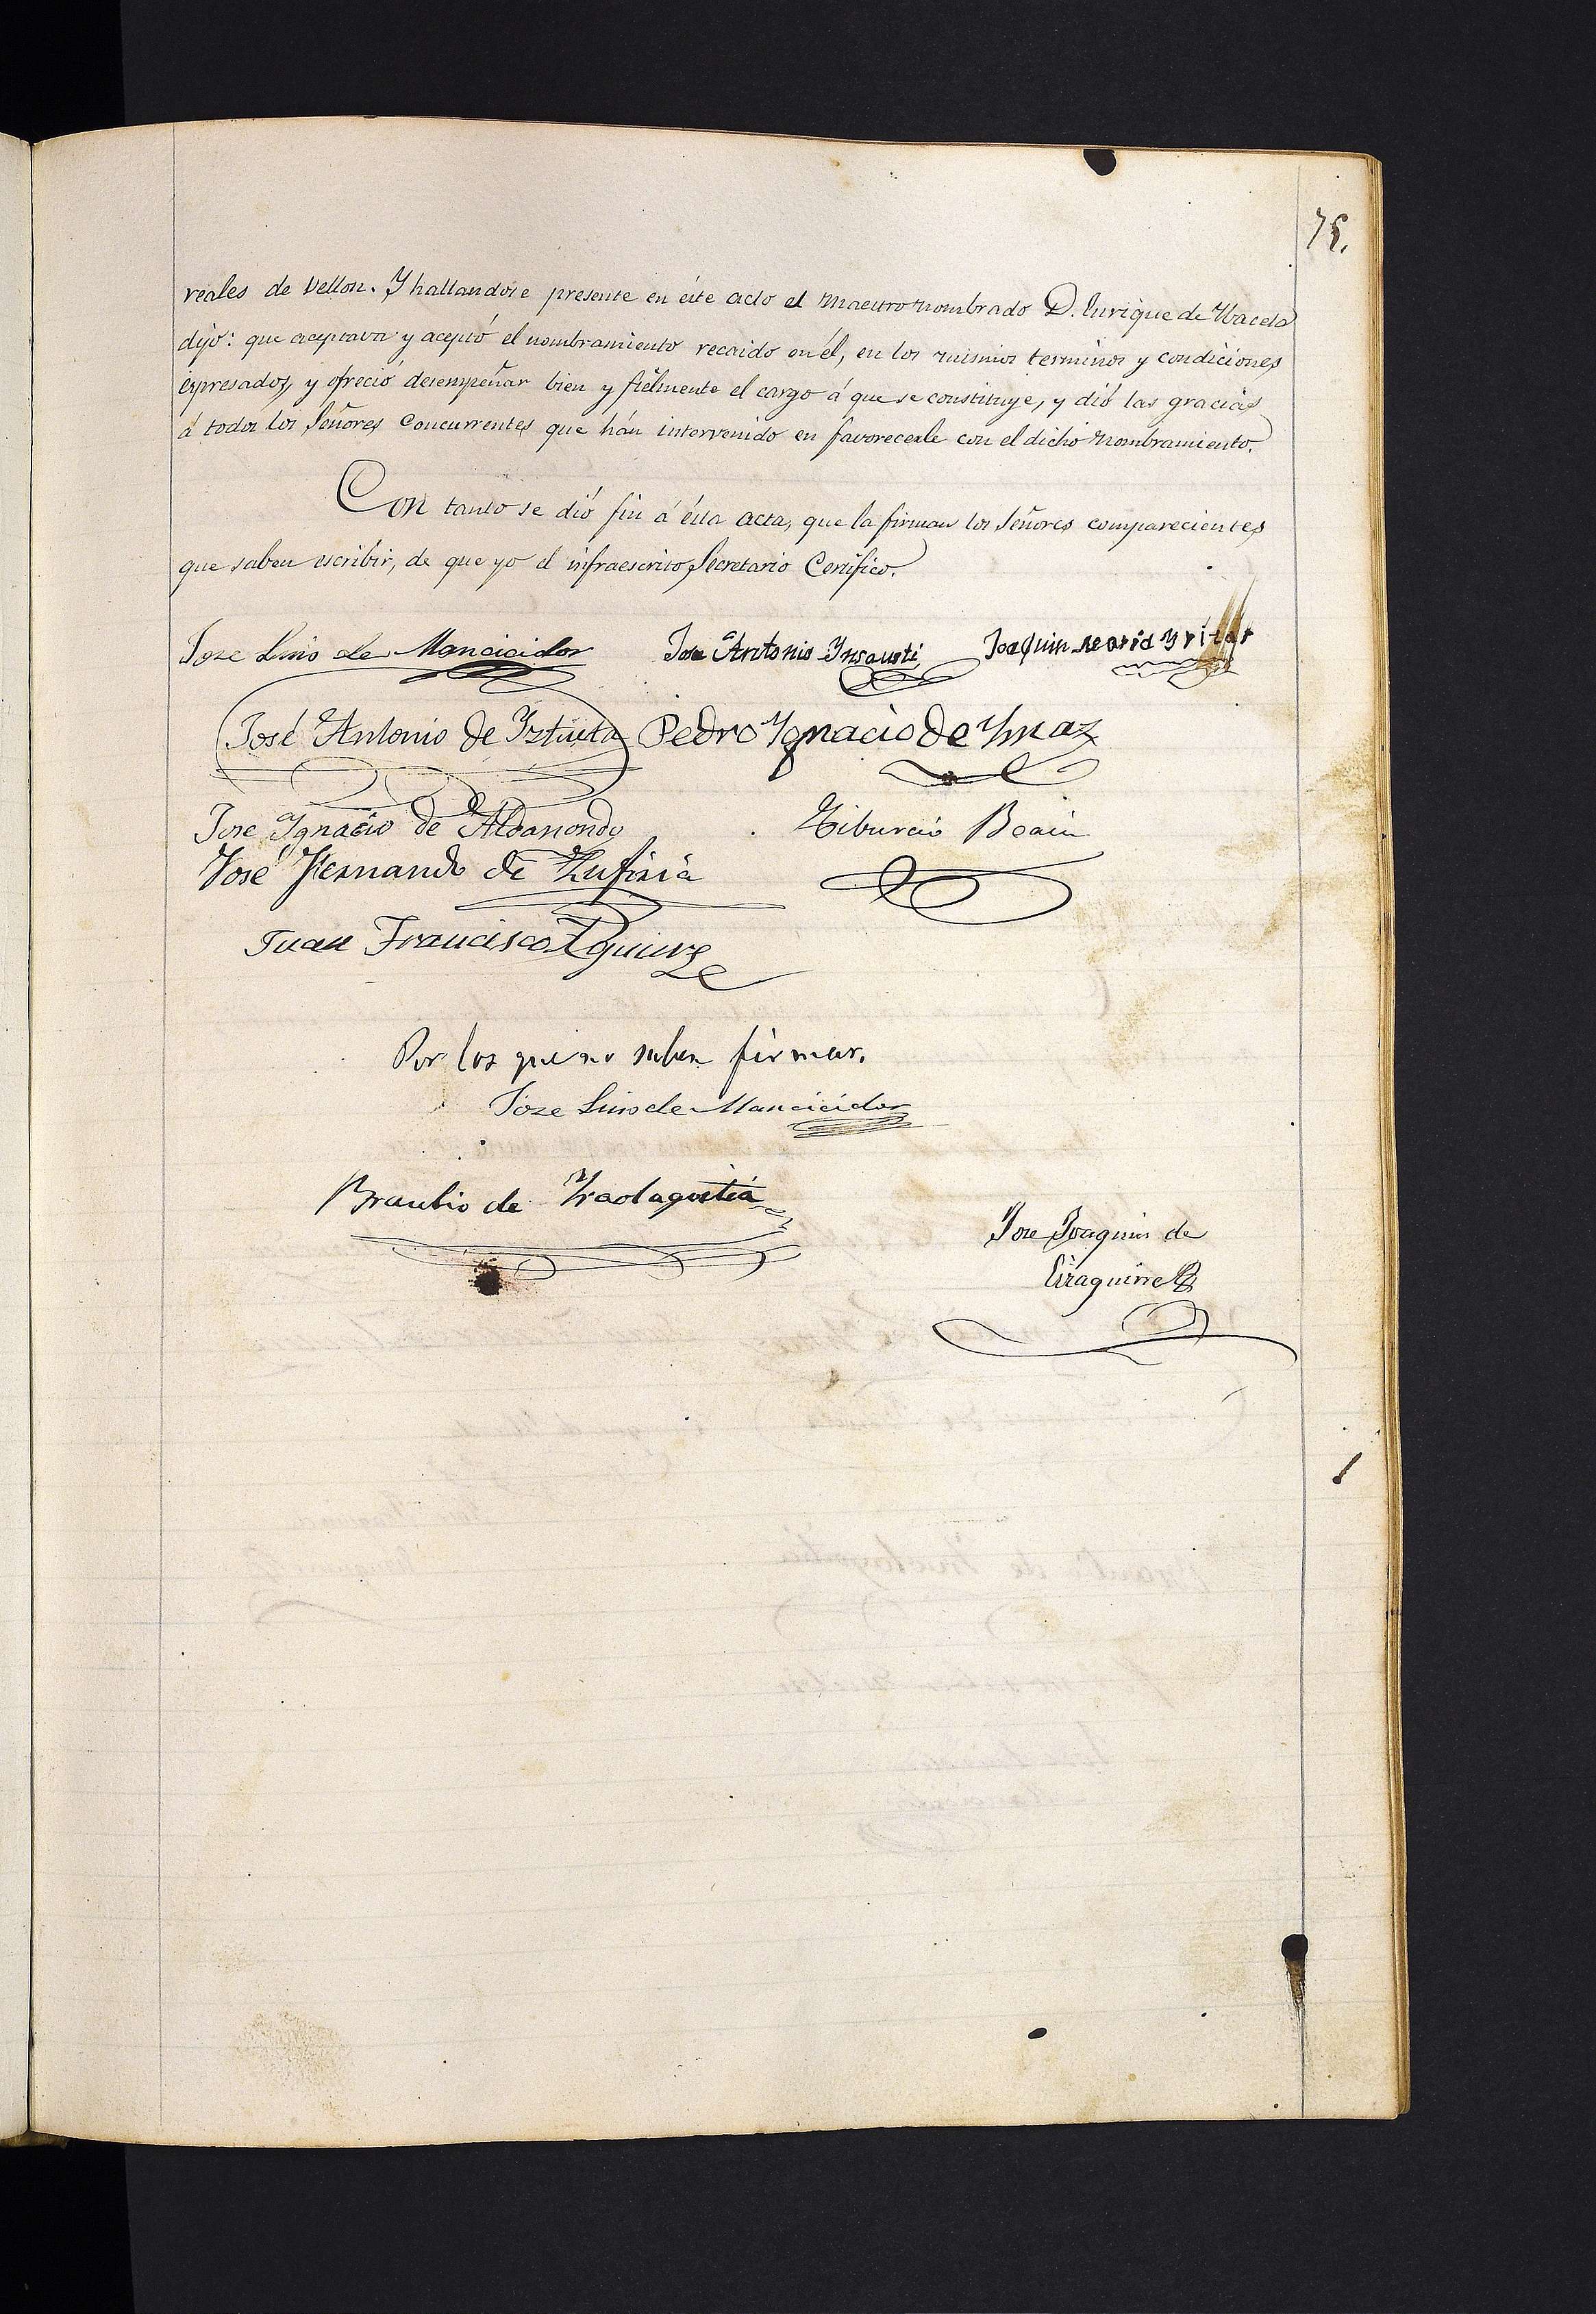 75.
reales de Vellon. Y hallandose presente en éste acto el Maestro nombrado D. Enrique de
dijo: que aceptava y aceptó el nombramiento recaido en él, en los mismos terminos y condiciones
espresados, y ofreció desempeñar bien y fielmente el cargo á que se constituye, y dió las gracias
á todos los Señores Concurrentes que hán intervenido en favorecerle con el dicho nombramiento.
Con tanto se dió fin á ésta acta, que la firman los Señores comparecientes
que saben escribir, de que yo el infraescrito Secretario Certifico.
Joze Lino de Mancicidor Jose Antonio Ynsausti Joaquin Maria
José Antonio de Yztueta Pedro Ygnacio de Ymaz
Jose Ygnacio de Aldanondo Tiburcio Beain
José Fernando de Zufiria
Juan Francisco Aguirre
Por los que no saben firmar.
Joze Lino de Mancicidor
Braulio de Yraolagoitia
Jose Joaquin de
Eizaguirre